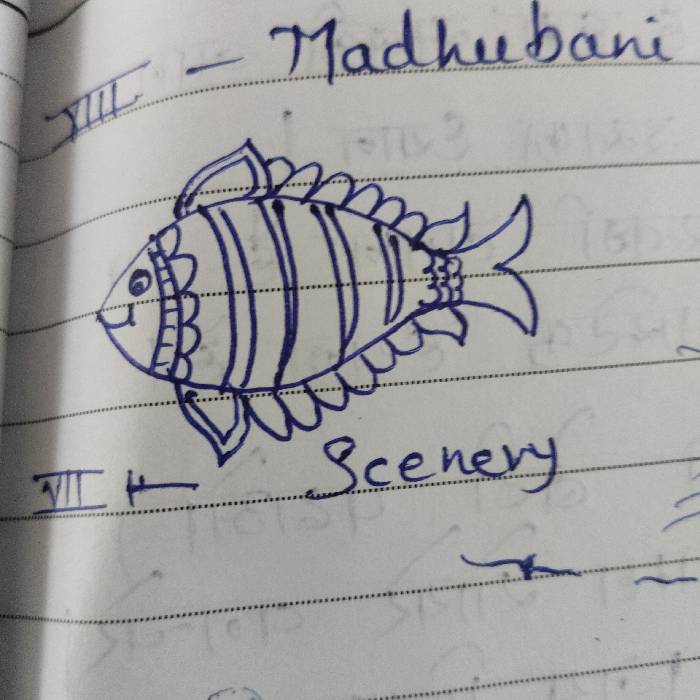 VIII - Madhubani
VII - Scenery